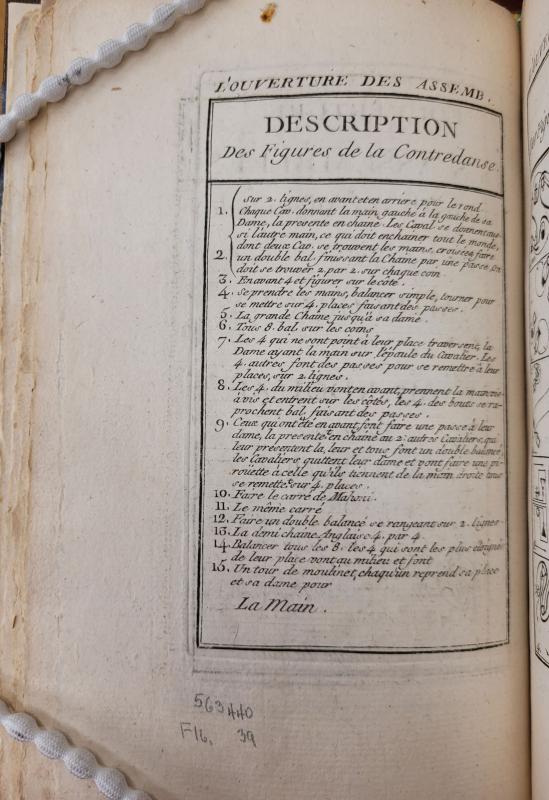 L'OUVERTURE DES ASSEMB.
DESCRIPTION
Des Figures de la Contredanse.
1. Sur 2. lignes, en avant et en arriere pour le rond
Chaque Cav. donnant la main gauche à la gauche de sa
Dame, la presente en chaine. Les Caval. se donnent aus-
si l'autre main, ce qui doit enchainer tout le monde,
dont deux Cav. se trouvent les mains croisées, faire
2. un double bal. finissant la Chaine par une passe, on
doit se trouver 2. par 2. sur chaque coin.
3. En avant 4 et figurer sur le côte.
4. Se prendre les mains, balancer simple, tourner pour
se mettre sur 4. places faisant des passes.
5. La grande Chaine jusqu'à sa dame.
6. Tous 8. bal. sur les coins
7. Les 4 qui ne sont point à leur place traversent, la
Dame ayant la main sur l'épaule du Cavalier. Les
4. autres font des passes pour se remettre à leur
places, sur 2. lignes.
8. Les 4. du milieu vont en avant, prennent la main vis-
à vis et entrent sur les côtés, les 4. des bouts se ra-
prochent bal. faisant des passes.
9. Ceux qui ont été en avant, font faire une passe à leur
dame, la presentent en chaine au 2. autres Cavaliers, qui
leur présentent la leur et tous font un double balancé,
les Cavaliers quittent leur dame et font faire une pi-
rouette à celle qu'ils tiennent de la main droite tous
se remettent sur 4. places.
10. Faire le carré de Mahoni.
11. Le même carré
12. Faire un double balancé se rangeant sur 2. lignes.
13. La demi chaine Anglaise 4. par 4
14. Balancer tous les 8. les 4 qui sont les plus éloignés
de leur place vont au milieu et font
15. Un tour de moulinet, chaqu'un reprend sa place
et sa dame pour
La Main.
563440
F16. 39